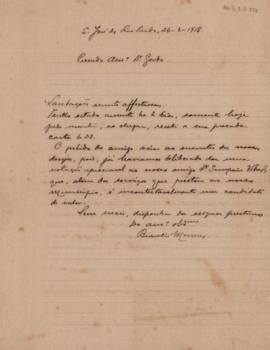 S. José do Rio Pardo, 26-2-1918
Presado Amº. Dr. Godoy
Saudações muito affectuosas.
Tendo estado ausente ha 4 dias, somente hoje
pela manhã, ao chegar, recebi a sua presada
carta de 22.
O pedido do amigo veiu ao encontro do nosso
desejo, pois, já haviamos deliberado dar uma
votação apreciavel ao nosso amigo Dr. Sampaio Vidal,
que, alem dos serviços que prestou ao nosso
municipio, é incontestavelmente um candidato
de valor.
Sem mais, disponha do exiguo prestimo
do amº. obº.